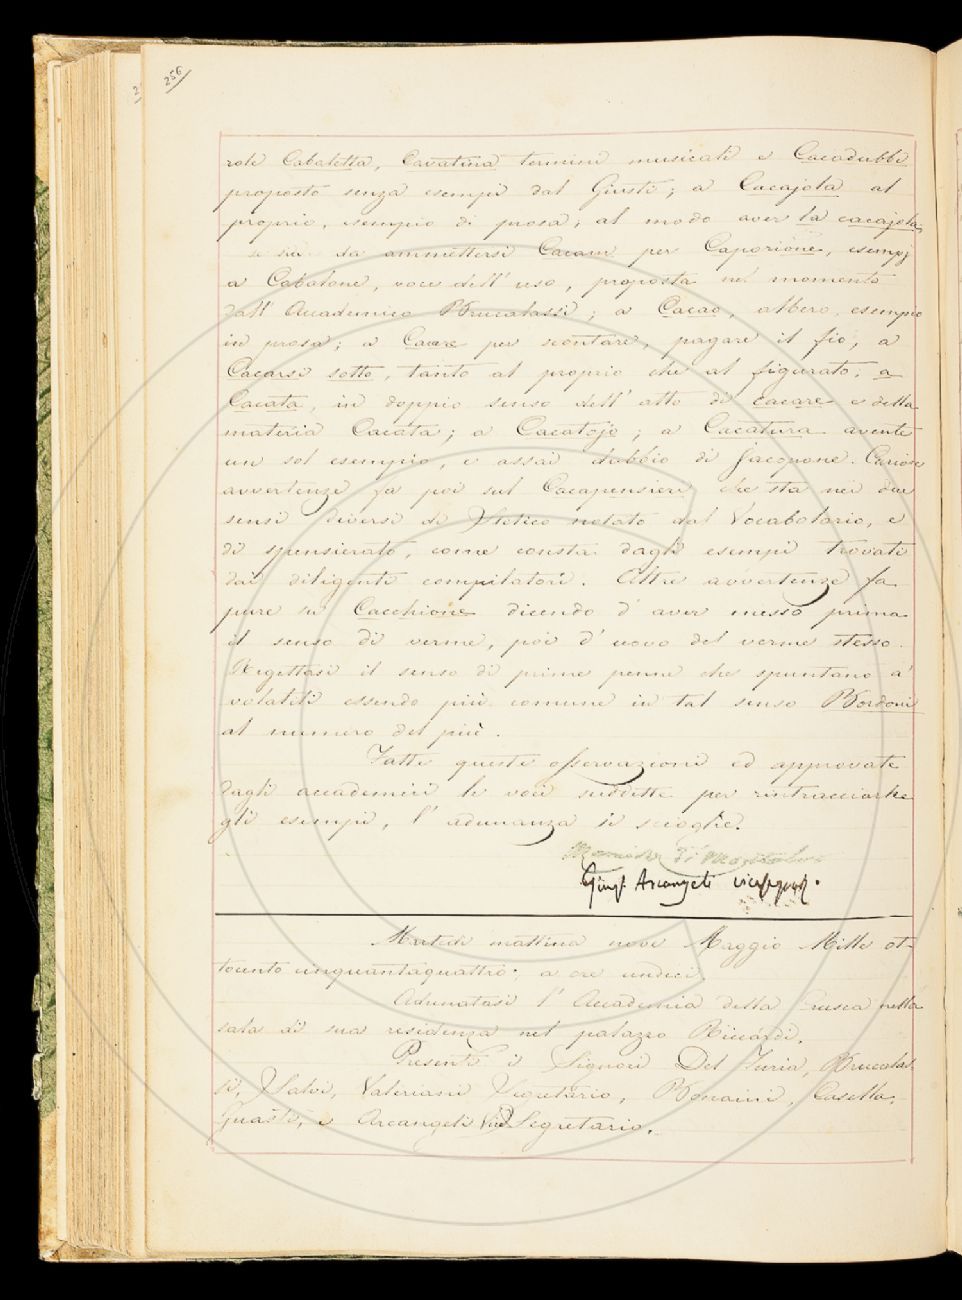 256
role Cabaletta, Cavatina termini musicali e Cacadubbi
proposto senza esempi dal Giusti; a Cacajola al
proprio, esempio di prosa; al modo aver la cacajola,
e sia da ammettersi Cacam per Caporione, esempj
a Cabalone, voce dell' uso, proposta nel momento
dall' Accademico Brucalassi; a Cacao, albero, esempio
in prosa; a Cacare per scontare, pagare il fio; a
Cacarsi sotto, tanto al proprio che al figurato; a
Cacata, in doppio senso dell' atto di cacare e della
materia Cacata; a Cacatojo; a Cacatura avente
un sol esempio, e assai dubbio di Jacopone. Curiose
avvertenze fa poi sul Cacapensieri che sta nei due
sensi diversi di Stitico notato dal Vocabolario, e
di spensierato, come consta dagli esempi trovati
dai diligenti compilatori. Altre avvertenze fa
pure su Cacchione dicendo d' aver messo prima
il senso di verme, poi d' uovo del verme stesso.
Rigettasi il senso di prime penne che spuntano a'
volatili essendo più comune in tal senso Bordoni
al numero del più.
Fatte queste osservazioni ed approvate
dagli accademici le voci suddette per rintracciarne
gli esempi, l' adunanza si scioglie.
Giusp. Arcangeli vicesegret.
Martedì mattina nove Maggio Mille ot-
tocento cinquantaquattro; a ore undici.
Adunatasi l' Accademia della Crusca nella
sala di sua residenza nel palazzo Riccardi.
Presenti i Signori Del Furia, Brucalas-
si, Salvi, Valeriani Segretario, Bonaini, Casella,
Guasti, e Arcangeli Vice Segretario.